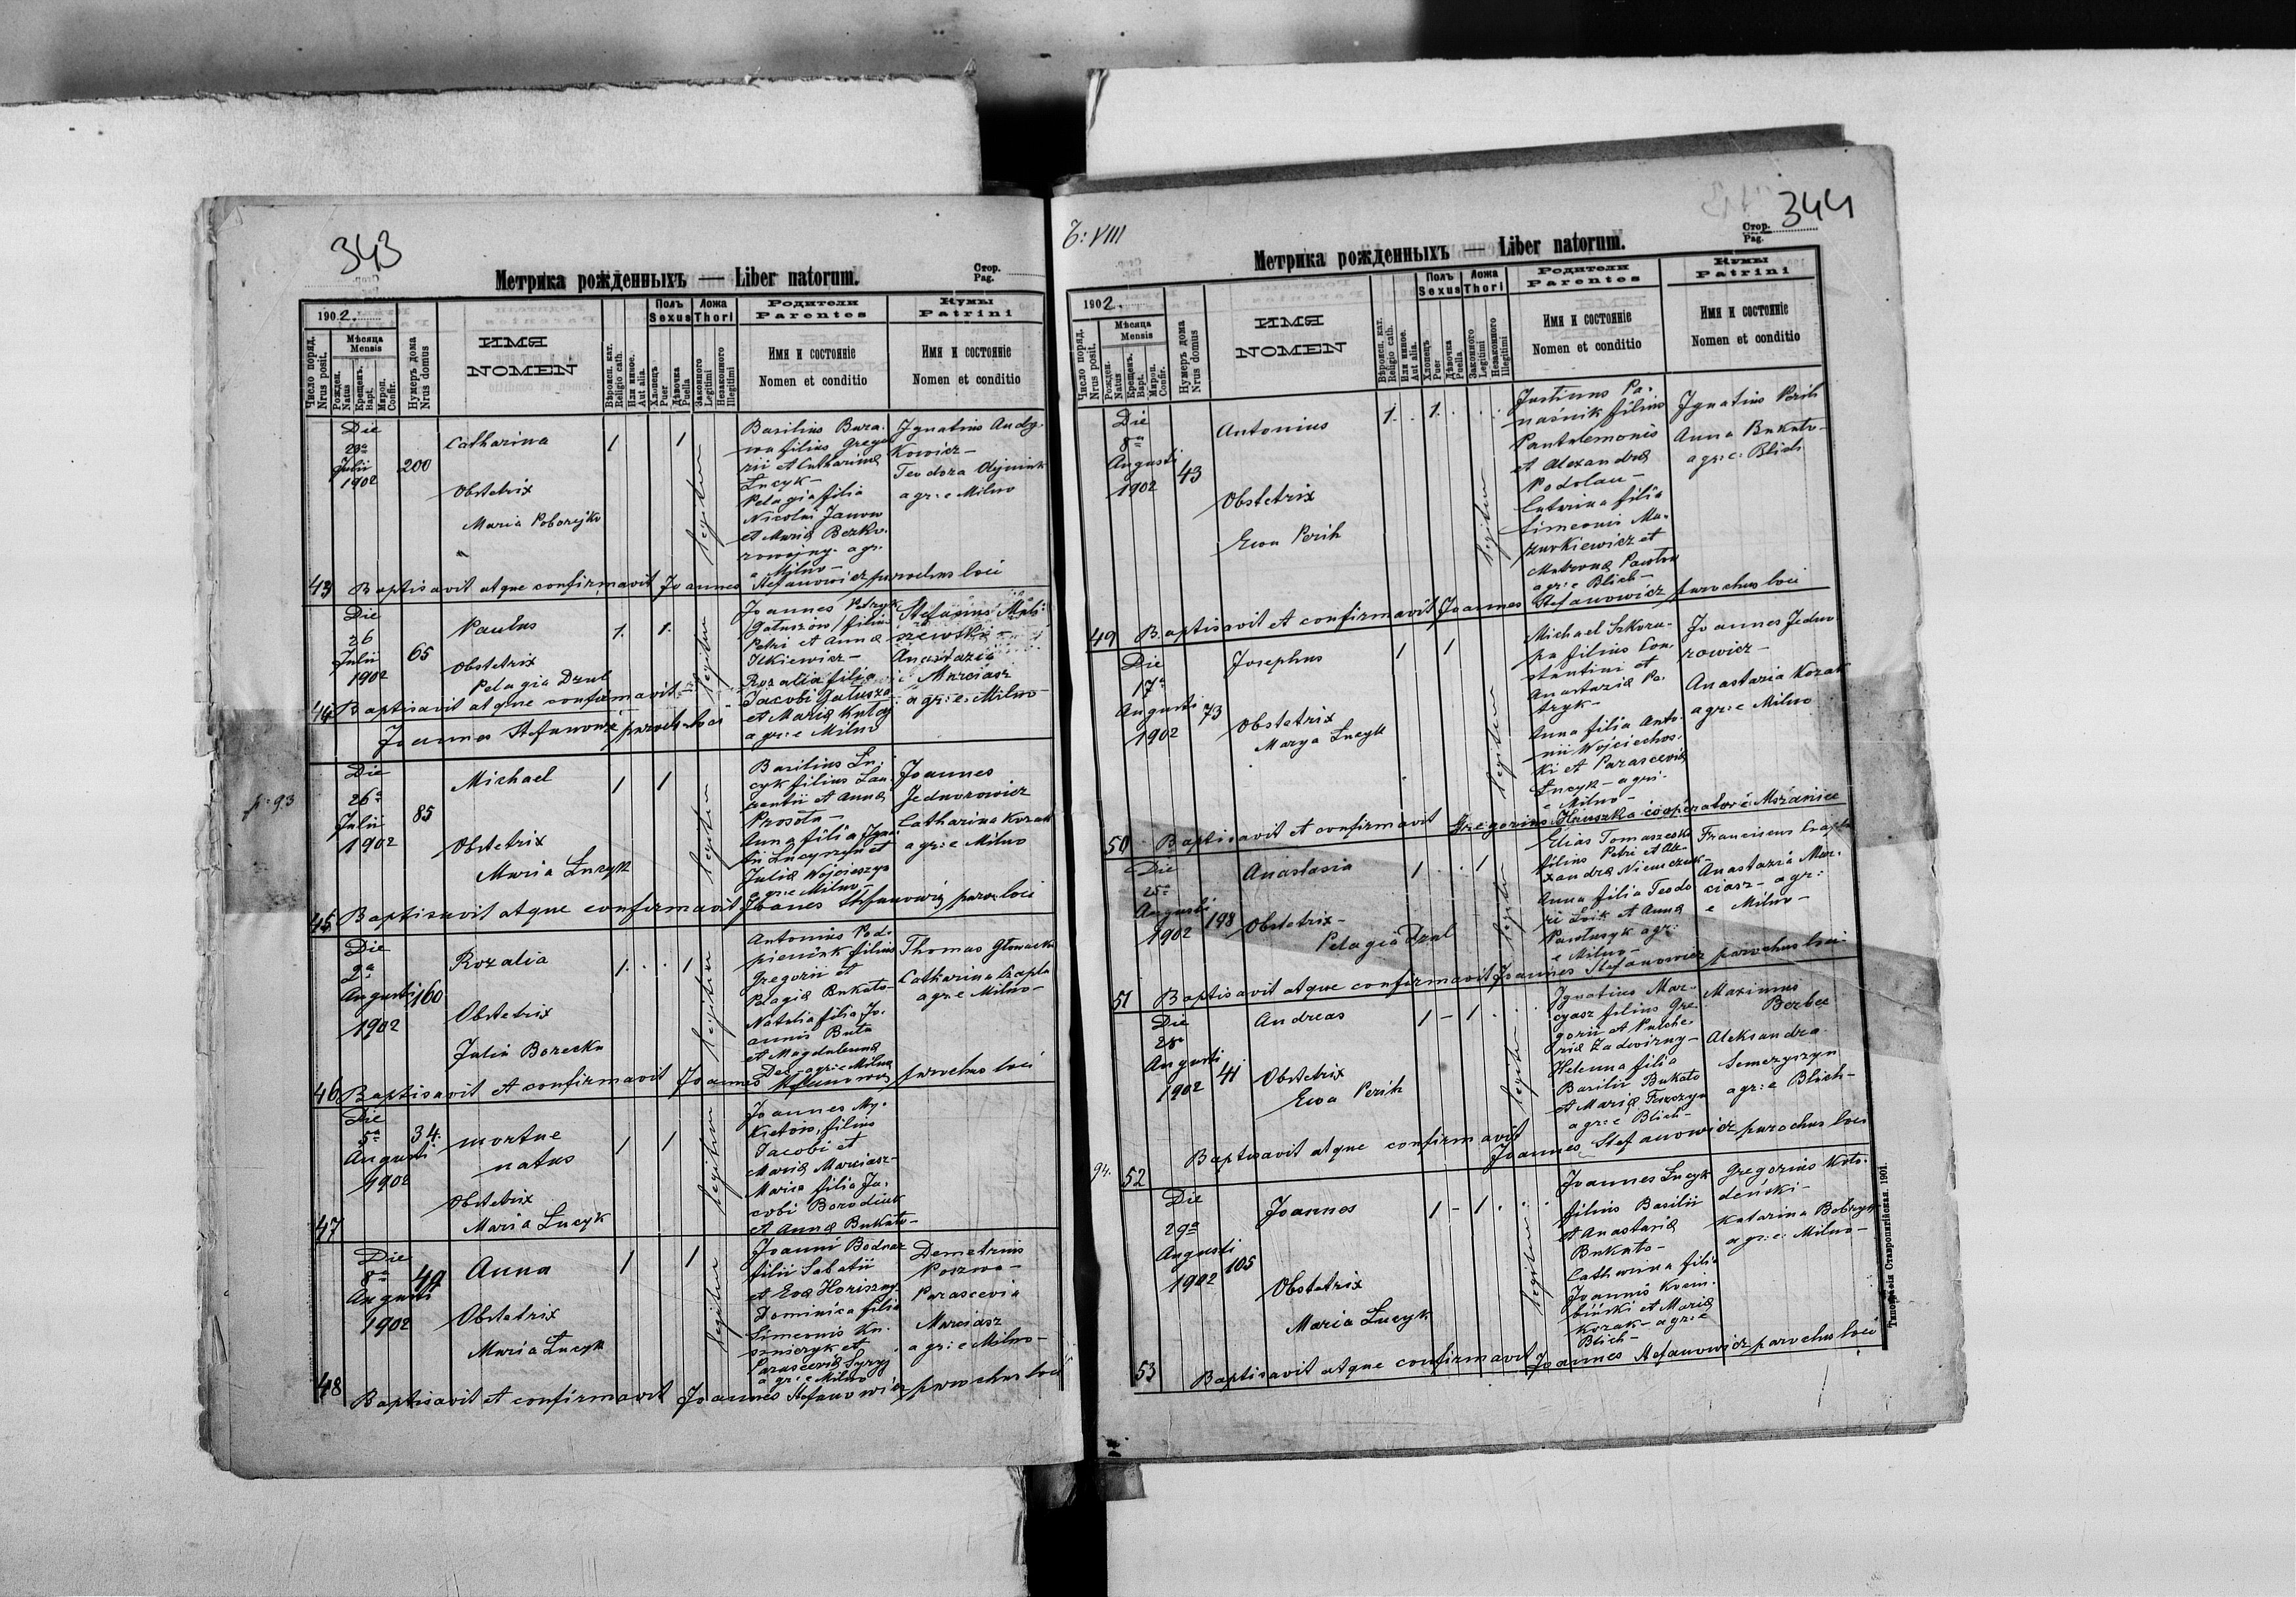 343
Метрика рожденныхъ — Liber natorum.
Стор.
Pag.
1902.
Число поряд.
Nrus posit.
Мѣсяца
Mensis
Рожден.
Natus
Крещенъ.
Bapt.
Мироп.
Confir.
Нумеръ дома
Nrus domus
ИМЯ
NOMEN
Вѣроисп. кат.
Religio cath.
Или иное.
Aut alia.
Полъ
Sexus
Хлопецъ
Puer
Дѣвочка
Puella
Ложа
Thori
Законного
Legitimi
Незаконного
Illegitimi
Родители
Parentes
Имя и состояніе
Nomen et conditio
Кумы
Patrini
Имя и состояніе
Nomen et conditio
Die
23a
Julii
1902
200
Catharina
1
1
Obstetrix
Maria Poborejko
legitim
Basilius Bura-
wa filius Grego
rii et Catharinæ
Łucyk-
Pelagia filia
Nicolai Janow
et Mariæ Bezko-
rowajny. agr.
e Milno-
Ignatius Andy-
kowicz-
Teodora Olijnink
agr: e Milno
43 Baptisavit atque confirmavit Joannes Stefanowicz parochus loci
Die
26
Julii
1902
65
Paulus
1.
1.
Obstetrix
Pelagia Dzul
legitim
Joannes Petryk
/Gałuszów/ filius
Petri et Annæ
Ickiewicz-
Rozalia filia
Jacobi Gałuszo
et Mariæ
agr: e Milno
Stefanus Mali-
szewski-
Anastazia
Marciasz
agr: e: Milno-
44 Baptisavit atque confirmavit-
Joannes Stefanowicz paroch. loci
p: 93
Die
26a
Julii
1902
85
Michael
1
1
Obstetrix
Maria Łucyk
legitim
Basilius Łu-
cyk filius Lau-
rentii et Annæ
Prosota-
Anna filia Igna
tii Łucyszyn et
Juliæ Wojcieszyn
agr: e Milno-
Joannes
Jednorowicz
Catharina Kozak
agr: e Milno
45 Baptisavit atque confirmavit Joanes Stefanowicz paro: loci
Die
2a
Augusti
1902
160
Rozalia
1.
1
Obstetrix
Julia Borecka
legitim
Antonius Pod-
pieniuk filius
Gregorii et
Pelagiæ Bukato-
Natalia filia Jo-
annis Buta
et Magdalenæ
Dec- agr: e Milno
Thomas Głowacki
Catharina Czapla
agr: e Milno-
46 Baptisavit et confirmavit Joannes Stefanowicz parochus loci
Die
5a
Augusti
1902
34.
mortue
natus
1
1
Obstetrix
Maria Łucyk
legitim
Joannes My-
kietow, filius
Jacobi et
Mariæ Marciasz-
Maria filia Ja-
cobi Borodiuk
et Annæ Bukato-
47
Die
8a
Augusti
1902
49
Anna
1
1
Obstetrix
Maria Łucyk
legitim
Joanni Bodnar
filii Sabatii
et Evæ Horiszny-
Dominica filia
Simeonis Ku-
sznieryk et
Parasceviæ Syryj
agr: e Milno
Demetrius
Pozwa-
Parascevia
Marciasz
agr: e Milno-
48 Baptisavit et confirmavit Joannes Stefanowicz parochus loci
T: VIII
344
Метрика рожденныхъ — Liber natorum.
Стор.
Pag.
1902.
Число поряд.
Nrus posit.
Мѣсяца
Mensis
Рожден.
Natus
Крещенъ.
Bapt.
Мироп.
Confir.
Нумеръ дома
Nrus domus
ИМЯ
NOMEN
Вѣроисп. кат.
Religio cath.
Или иное.
Aut alia.
Полъ
Sexus
Хлопецъ
Puer
Дѣвочка
Puella
Ложа
Thori
Законного
Legitimi
Незаконного
Illegitimi
Родители
Parentes
Имя и состояніе
Nomen et conditio
Кумы
Patrini
Имя и состояніе
Nomen et conditio
Die
8a
Augusti
1902
43
Antonius
1.
1.
Obstetrix
Ewa Perih
legitim
Justinus Pa-
naśnik filius
Pantalemonis
et Alexandræ
Podolan-
Catarina filia
Simeonis Ma-
zurkiewicz et
Matronæ
agr: e Blich-
Ignatius Perih
Anna Bukato-
agr: e: Blich
49 Baptisavit et confirmavit Joannes Stefanowicz parochus loci
Die
17a
Augusti
1902
73
Josephus
1
1
Obstetrix
Marya Łucyk
legitim
Michael Szkora-
pa filius Con-
stantini et
Anastaziæ Pa-
tryk-
Anna filia Anto-
nii Wojciechow-
ki et Parasceviæ
Łucyk- agri-
e Milno-
Joannes Jedno
rowicz-
Anastazia Kozak
agr: e Milno
50 Baptisavit et confirmavit Gregorius Hanuszka cooperator e Mszaniec
Die
25a
Augusti
1902
198
Anastasia
1
1
Obstetrix-
Pelagia Dzul
legitim
Elias Tomaszeski
filius Petri et Ale-
xandræ Niemczuk-
Anna filia Teodo
ri Loik et Annæ
Pawłusyk agr:
e Milno-
Franciscus Czapla
Anastazia Mar-
ciasz- agr:
e Milno-
51 Baptisavit atque confirmavit Joannes Stefanowicz parochus loci
Die
28a
Augusti
1902
41
Andreas
1
1
Obstetrix
Ewa Perih
legitim
Ignatius Mar-
cyasz filius Gre-
gorii et Pulche-
riæ Zadwirny-
Helenna filia
Basilii Bukato
et Mariæ
agr: e Blich-
Maximus
Bezbec
Aleksandra
Semczyszyn
agr: e Blich-
52 Baptisavit atque confirmavit
Joannes Stefanowicz parochus loci
94.
Die
29a
Augusti
1902
105
Joannes
1
1
Obstetrix
Maria Łucyk
legitim
Joannes Łucyk
filius Basilii
et Anastasiæ
Bukato-
Catherina filia
Joannis Koem-
biński et Mariæ
Kozak- agr: e
Blich-
Gregorius Koło-
deński-
Katarina Bobryk
agr: e: Milno-
53 Baptisavit atque confirmavit Joannes Stefanowicz parochus loci
Типографія Ставропигійская. 1901.